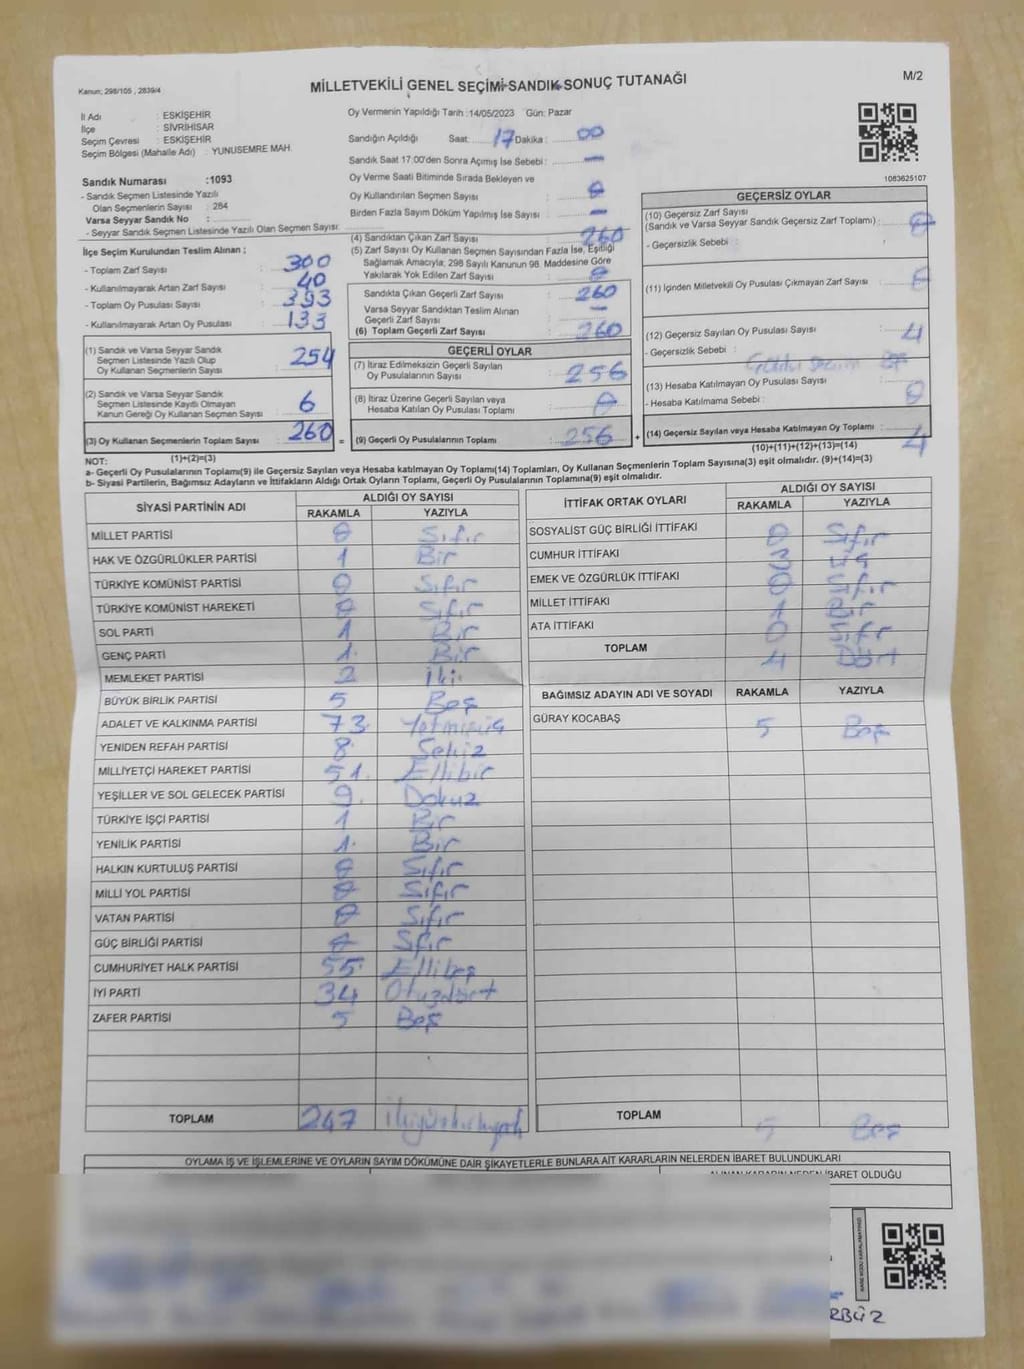 Kanun; 298/105 , 2839/4
MİLLETVEKİLİ GENEL SEÇİMİ SANDIK SONUÇ TUTANAĞI
M/2
İl Adı : ESKİŞEHİR
İlçe : SİVRİHİSAR
Seçim Çevresi : ESKİŞEHİR
Seçim Bölgesi (Mahalle Adı) : YUNUSEMRE MAH.
Oy Vermenin Yapıldığı Tarih :14/05/2023 Gün: Pazar
Sandığın Açıldığı Saat: 17 Dakika : 00
Sandık Saat 17:00'den Sonra Açımış İse Sebebi : —
Oy Verme Saati Bitiminde Sırada Bekleyen ve
Oy Kullandırılan Seçmen Sayısı : 0
Birden Fazla Sayım Döküm Yapılmış İse Sayısı : —
1083625107
Sandık Numarası :1093
- Sandık Seçmen Listesinde Yazılı
Olan Seçmenlerin Sayısı : 284
Varsa Seyyar Sandık No :
- Seyyar Sandık Seçmen Listesinde Yazılı Olan Seçmen Sayısı:
İlçe Seçim Kurulundan Teslim Alınan ;
- Toplam Zarf Sayısı : 300
- Kullanılmayarak Artan Zarf Sayısı : 40
- Toplam Oy Pusulası Sayısı : 393
- Kullanılmayarak Artan Oy Pusulası : 133
(1) Sandık ve Varsa Seyyar Sandık
Seçmen Listesinde Yazılı Olup
Oy Kullanan Seçmenlerin Sayısı : 254
(2) Sandık ve Varsa Seyyar Sandık
Seçmen Listesinde Kayıtlı Olmayan
Kanun Gereği Oy Kullanan Seçmen Sayısı : 6
(3) Oy Kullanan Seçmenlerin Toplam Sayısı : 260 =
(1)+(2)=(3)
(4) Sandıktan Çıkan Zarf Sayısı : 260
(5) Zarf Sayısı Oy Kullanan Seçmen Sayısından Fazla İse, Eşitliği
Sağlamak Amacıyla; 298 Sayılı Kanunun 98. Maddesine Göre
Yakılarak Yok Edilen Zarf Sayısı : 0
Sandıkta Çıkan Geçerli Zarf Sayısı : 260
Varsa Seyyar Sandıktan Teslim Alınan
Geçerli Zarf Sayısı : —
(6) Toplam Geçerli Zarf Sayısı : 260
GEÇERLİ OYLAR
(7) İtiraz Edilmeksizin Geçerli Sayılan
Oy Pusulalarının Sayısı : 256
(8) İtiraz Üzerine Geçerli Sayılan veya
Hesaba Katılan Oy Pusulası Toplamı : 0
(9) Geçerli Oy Pusulalarının Toplamı : 256 +
GEÇERSİZ OYLAR
(10) Geçersiz Zarf Sayısı
(Sandık ve Varsa Seyyar Sandık Geçersiz Zarf Toplamı) : 0
- Geçersizlik Sebebi :
(11) İçinden Milletvekili Oy Pusulası Çıkmayan Zarf Sayısı : 0
(12) Geçersiz Sayılan Oy Pusulası Sayısı : 4
- Geçersizlik Sebebi :
(13) Hesaba Katılmayan Oy Pusulası Sayısı : 0
- Hesaba Katılmama Sebebi :
(14) Geçersiz Sayılan veya Hesaba Katılmayan Oy Toplamı : 4
(10)+(11)+(12)+(13)=(14)
NOT:
a- Geçerli Oy Pusulalarının Toplamı(9) ile Geçersiz Sayılan veya Hesaba katılmayan Oy Toplamı(14) Toplamları, Oy Kullanan Seçmenlerin Toplam Sayısına(3) eşit olmalıdır. (9)+(14)=(3)
b- Siyasi Partilerin, Bağımsız Adayların ve İttifakların Aldığı Ortak Oyların Toplamı, Geçerli Oy Pusulalarının Toplamına(9) eşit olmalıdır.
SİYASİ PARTİNİN ADI ALDIĞI OY SAYISI
RAKAMLA YAZIYLA
MİLLET PARTİSİ 0 Sıfır
HAK VE ÖZGÜRLÜKLER PARTİSİ 1 Bir
TÜRKİYE KOMÜNİST PARTİSİ 0 Sıfır
TÜRKİYE KOMÜNİST HAREKETİ 0 Sıfır
SOL PARTİ 1 Bir
GENÇ PARTİ 1 Bir
MEMLEKET PARTİSİ 2 İki
BÜYÜK BİRLİK PARTİSİ 5 Beş
ADALET VE KALKINMA PARTİSİ 73 Yetmişüç
YENİDEN REFAH PARTİSİ 8 Sekiz
MİLLİYETÇİ HAREKET PARTİSİ 51 Ellibir
YEŞİLLER VE SOL GELECEK PARTİSİ 9 Dokuz
TÜRKİYE İŞÇİ PARTİSİ 1 Bir
YENİLİK PARTİSİ 1 Bir
HALKIN KURTULUŞ PARTİSİ 0 Sıfır
MİLLİ YOL PARTİSİ 0 Sıfır
VATAN PARTİSİ 0 Sıfır
GÜÇ BİRLİĞİ PARTİSİ 0 Sıfır
CUMHURİYET HALK PARTİSİ 55 Ellibeş
İYİ PARTİ 34 Otuzdört
ZAFER PARTİSİ 5 Beş
TOPLAM 247
İTTİFAK ORTAK OYLARI ALDIĞI OY SAYISI
RAKAMLA YAZIYLA
SOSYALİST GÜÇ BİRLİĞİ İTTİFAKI 0 Sıfır
CUMHUR İTTİFAKI 3 Üç
EMEK VE ÖZGÜRLÜK İTTİFAKI 0 Sıfır
MİLLET İTTİFAKI 1 Bir
ATA İTTİFAKI 0 Sıfır
TOPLAM 4 Dört
BAĞIMSIZ ADAYIN ADI VE SOYADI RAKAMLA YAZIYLA
GÜRAY KOCABAŞ 5 Beş
TOPLAM 5 Beş
OYLAMA İŞ VE İŞLEMLERİNE VE OYLARIN SAYIM DÖKÜMÜNE DAİR ŞİKAYETLERLE BUNLARA AİT KARARLARIN NELERDEN İBARET BULUNDUKLARI
ALINAN KARARIN NEDEN İBARET OLDUĞU